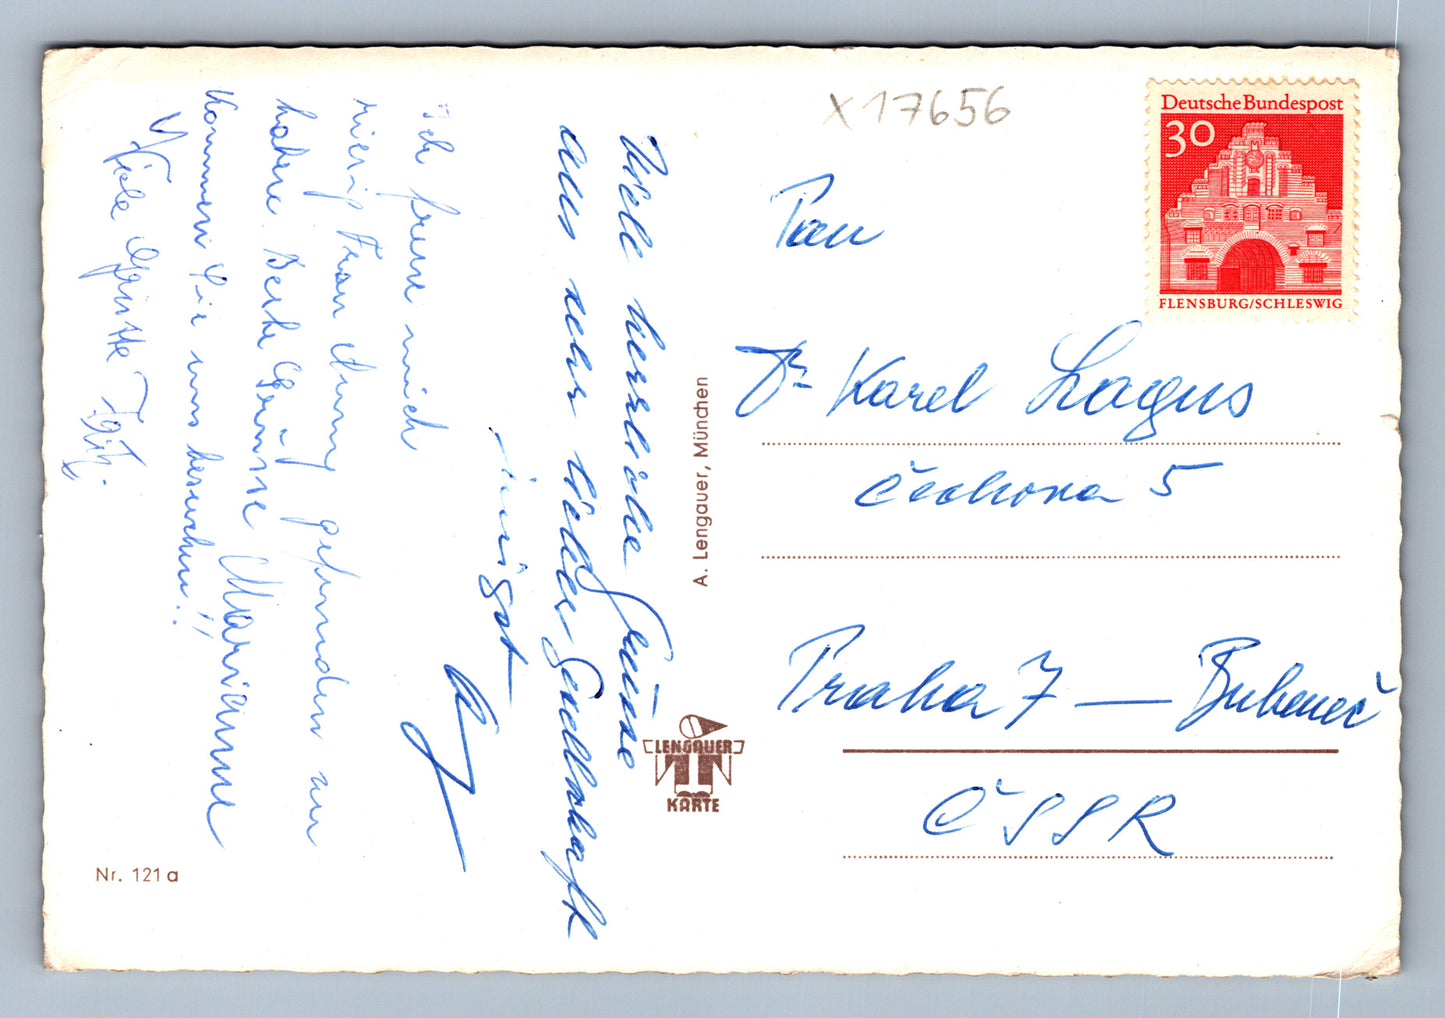 Viele herrliche Grüsse
aus sehr lieber Gesellschaft
innigst
Ich freue mich
riesig Frau gefunden zu
haben. Beste Grüsse Marianne
Kommen Sie uns besuchen!!
Viele Grüsse
Nr. 121 a
A. Lengauer, München
LENGAUER
KARTE
X17656
Deutsche Bundespost
30
FLENSBURG/SCHLESWIG
Pan
Dr. Karel Lagus
Čechova 5
Praha 7 — Bubeneč
ČSSR